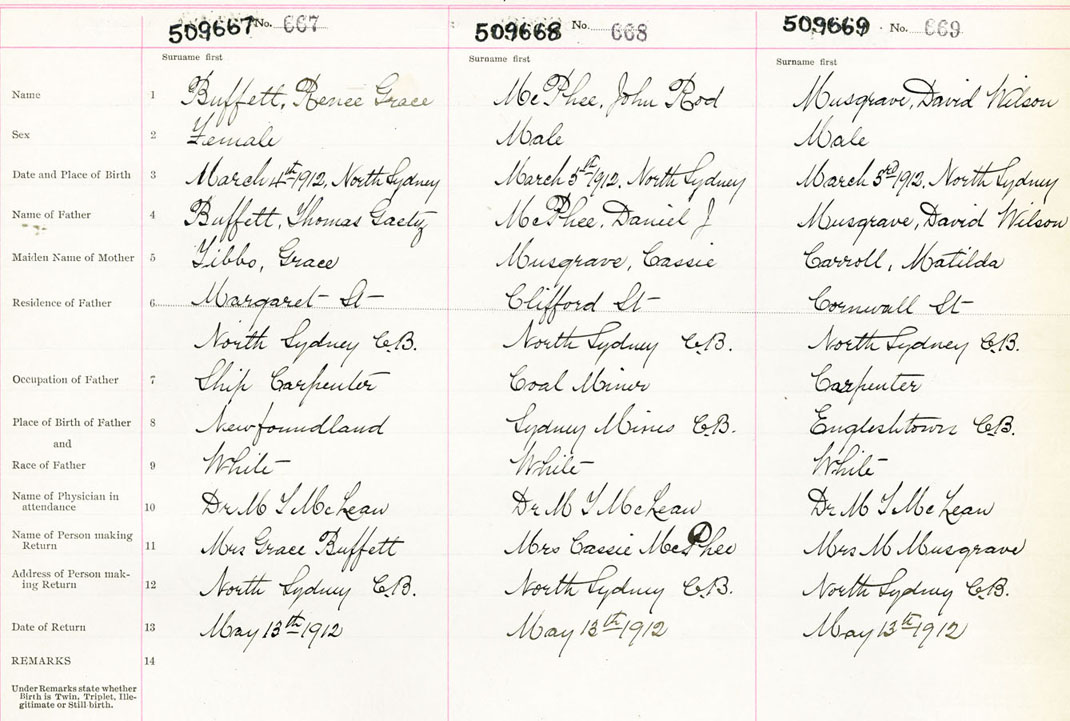 509667 No. 667 509668 No. 668 509669 No. 669
Surname first Surname first Surname first
Name 1 Buffett, Renee Grace McPhee, John Rod Musgrave, David Wilson
Sex 2 Female Male Male
Date and Place of Birth 3 March 4th 1912, North Sydney March 5th 1912, North Sydney March 3rd 1912, North Sydney
Name of Father 4 Buffett, Thomas Gaetz McPhee, Daniel J Musgrave, David Wilson
Maiden Name of Mother 5 Tibbo, Grace Musgrave, Cassie Carroll, Matilda
Residence of Father 6 Margaret St Clifford St Cornwall St
North Sydney C.B. North Sydney C.B. North Sydney C.B.
Occupation of Father 7 Ship Carpenter Coal Miner Carpenter
Place of Birth of Father 8 Newfoundland Sydney Mines C.B. Englishtown C.B.
and
Race of Father 9 White White White
Name of Physician in
attendance 10 Dr M T McLean Dr M T McLean Dr M T McLean
Name of Person making
Return 11 Mrs Grace Buffett Mrs Cassie McPhee Mrs M Musgrave
Address of Person mak-
ing Return 12 North Sydney C.B. North Sydney C.B. North Sydney C.B.
Date of Return 13 May 13th 1912 May 13th 1912 May 13th 1912
REMARKS 14
Under Remarks state whether
Birth is Twin, Triplet, Ille-
gitimate or Still-birth.